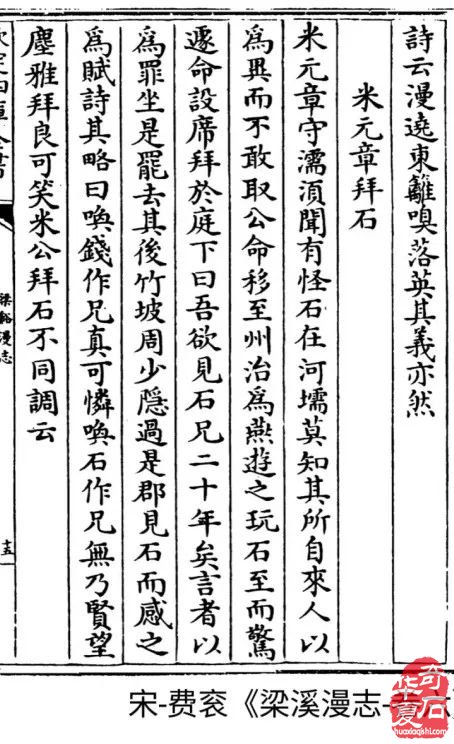 詩云漫遶東籬嗅落英其義亦然
米元章拜石
米元章守濡須聞有怪石在河壖莫知其所自來人以
為異而不敢取公命移至州治為燕遊之玩石至而驚
遽命設席拜於庭下曰吾欲見石兄二十年矣言者以
為罪坐是罷去其後竹坡周少隱過是郡見石而感之
為賦詩其略曰喚錢作兄真可憐喚石作兄無乃賢望
塵雅拜良可笑米公拜石不同調云
全書
梁谿漫志
十五
宋-费衮《梁溪漫志-
华夏奇石
huaxiaqishi.com